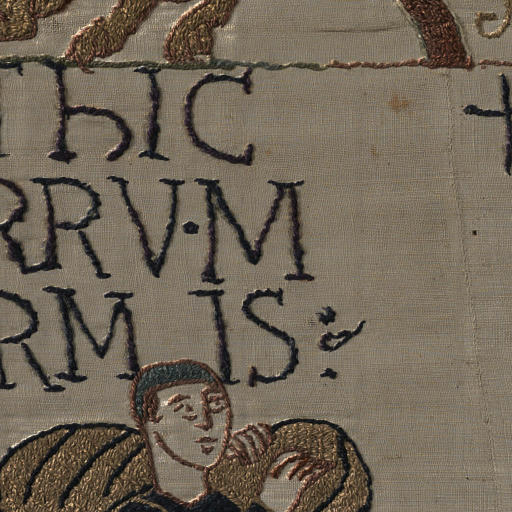 hIC
RRV·M
RM IS: